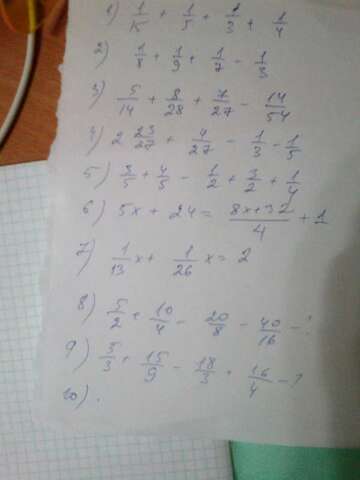 1) 1/15 + 1/5 + 1/3 + 1/4
2) 1/8 + 1/9 + 1/7 - 1/3
3) 5/14 + 8/28 + 7/27 - 14/54
4) 2 23/27 + 4/27 - 1/3 - 1/5
5) 3/5 + 4/5 - 1/2 + 3/2 + 1/4
6) 5x + 24 = 8x+32/4 + 1
7) 1/13 x + 1/26 x = 2
8) 5/2 + 10/4 - 20/8 - 40/16 - ?
9) 5/3 + 15/9 - 18/3 + 16/4 - ?
10) .